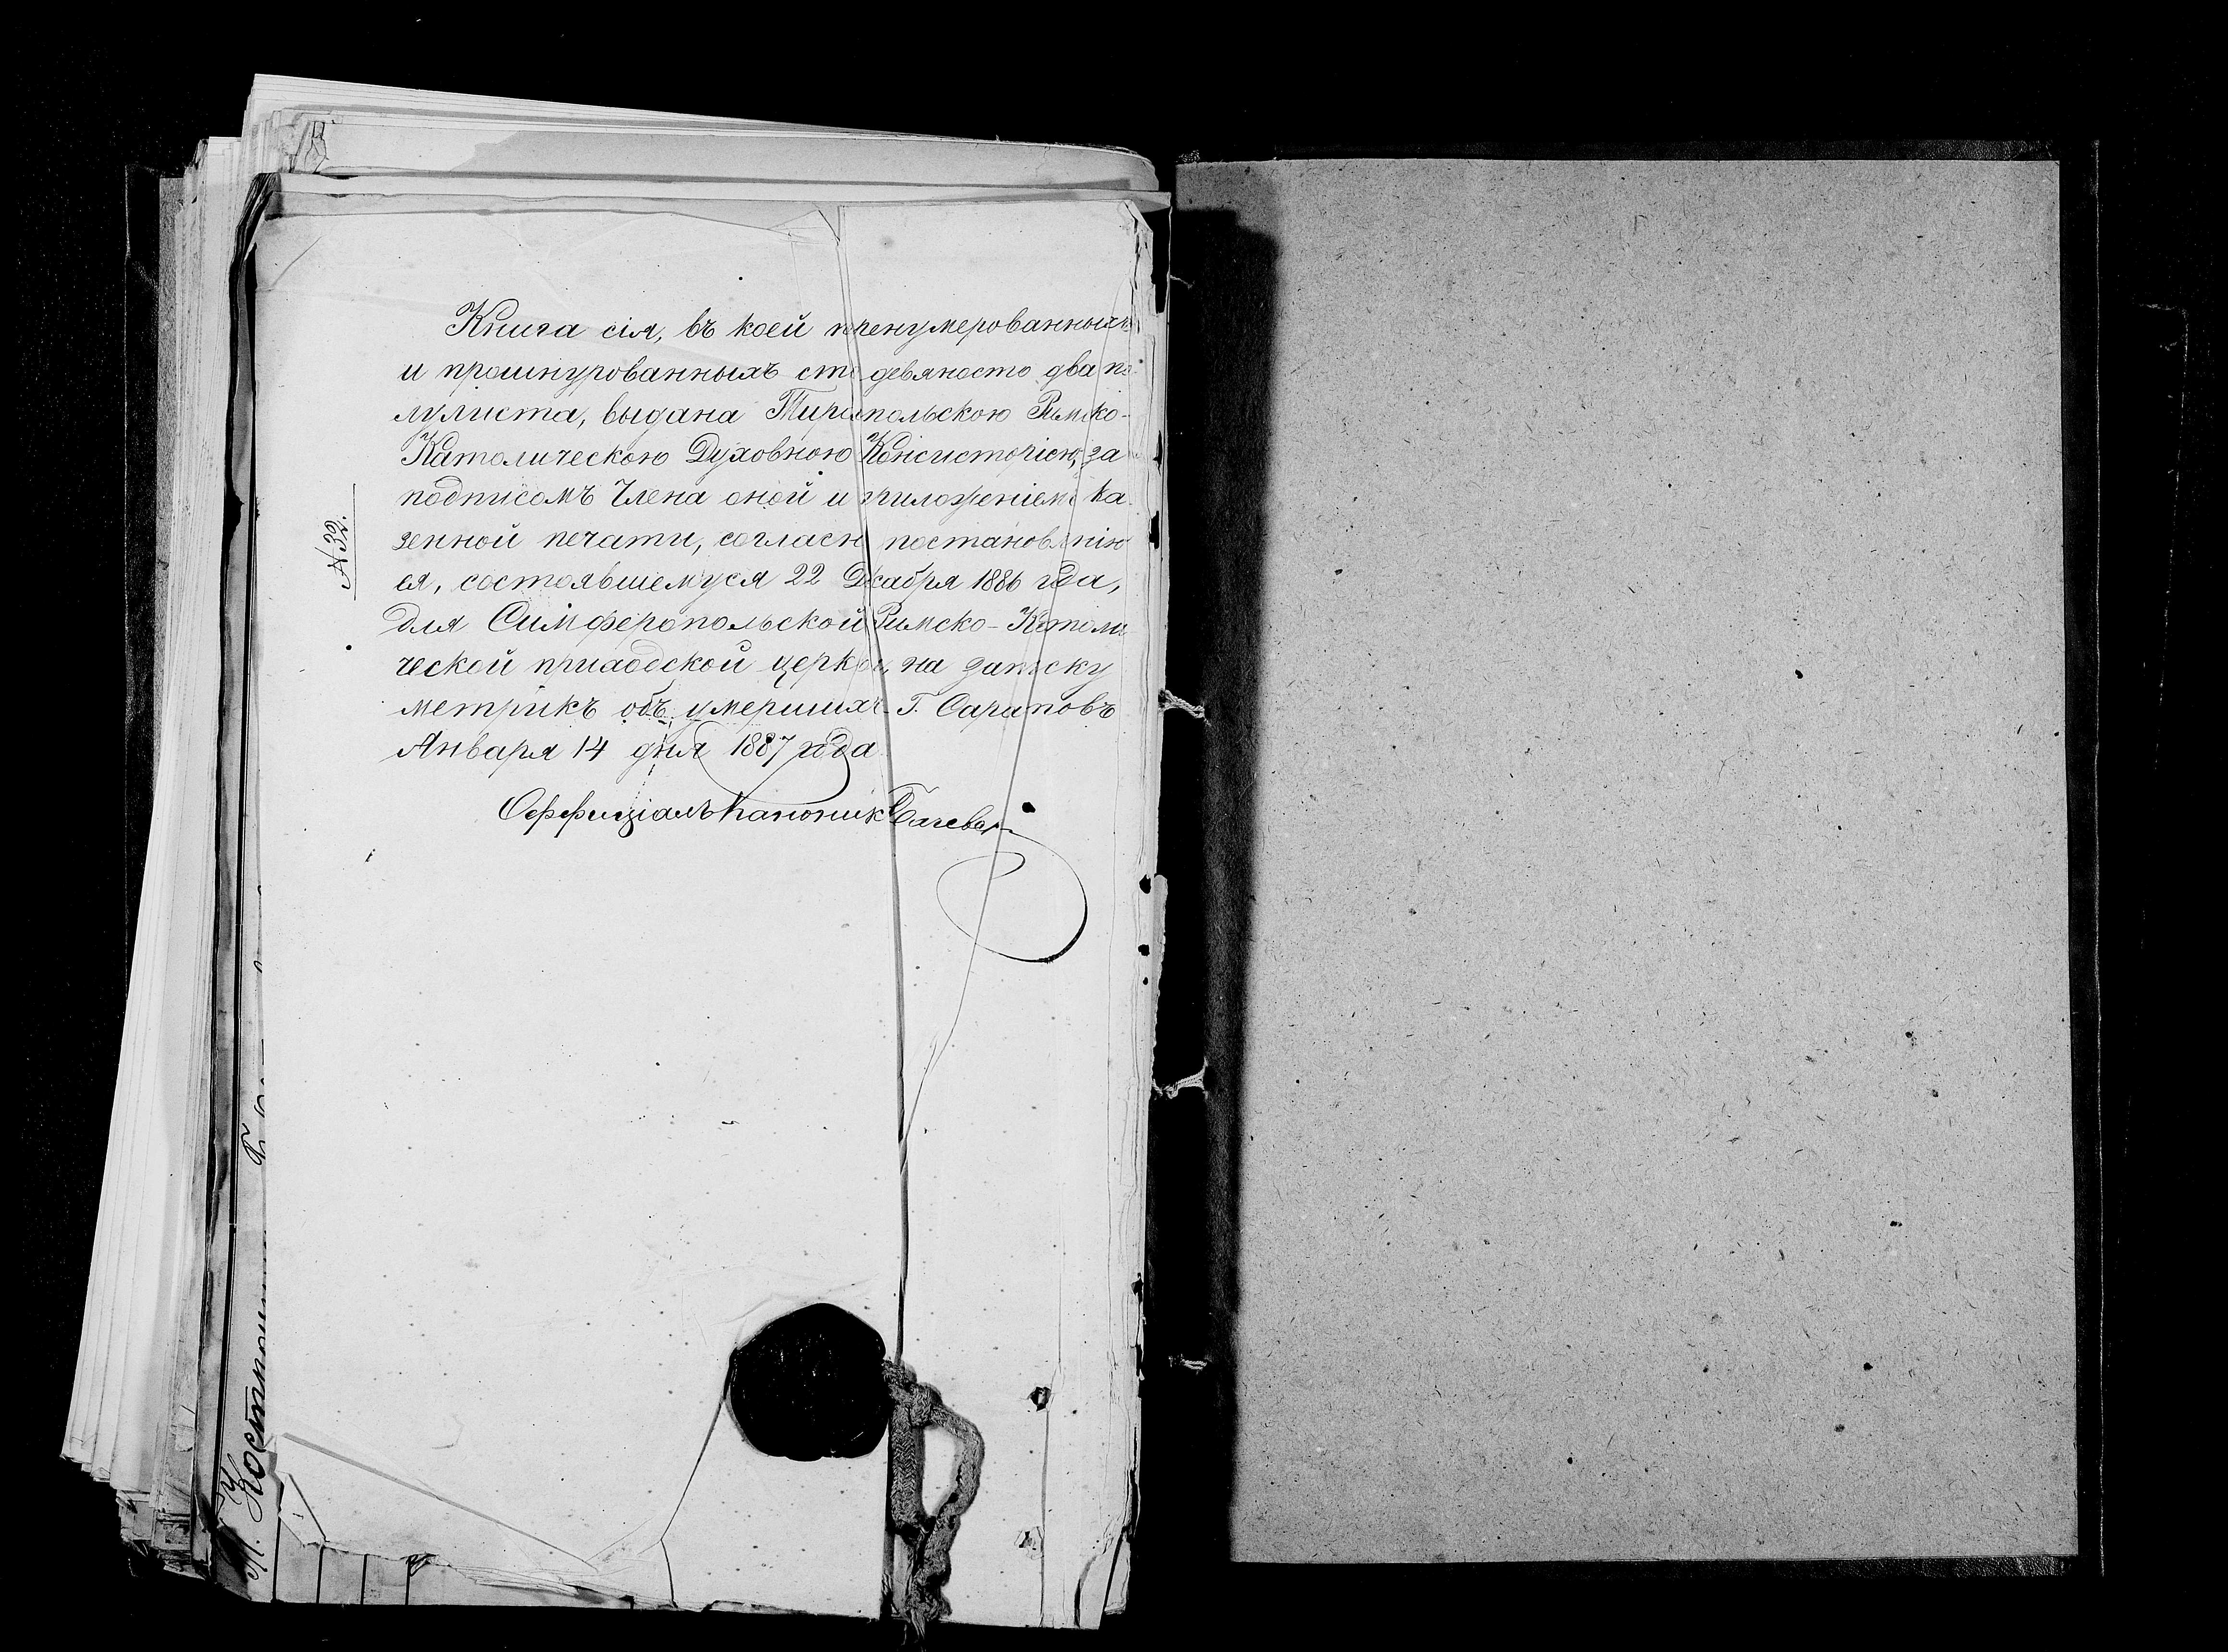 Книга сія, въ коей пренумерованныхъ
и прошнурованныхъ сто девяносто два по-
лулиста, выдана Тираспольскою Римско-
Католическою Духовною Консисторіею, за
подписомъ Члена оной и приложеніемъ ка-
зенной печати, согласно постановленію
ея, состоявшемуся 22 Декабря 1886 года,
для Симферопольской Римско-Католи-
ческой приходской церкви, на записку
метрикъ объ умершихъ. Г. Саратовъ
Января 14 дня 1887 года.
Оффиціалъ Каноник
№ 32.